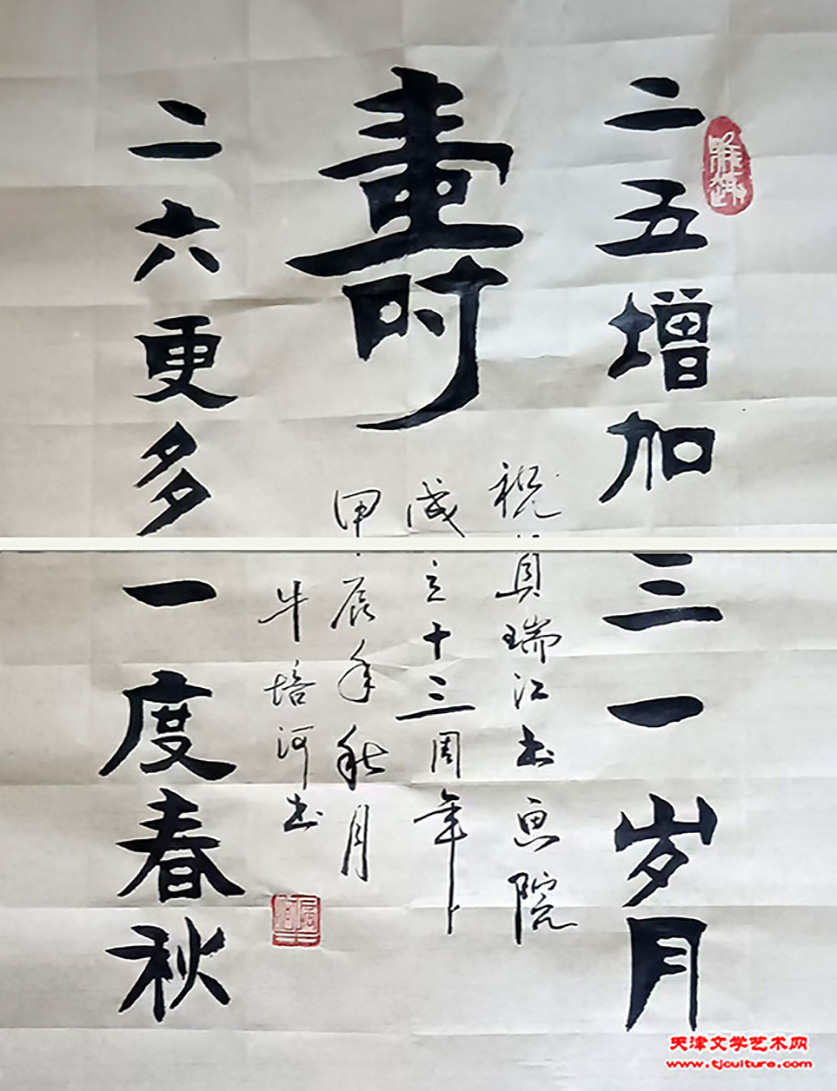 二五增加三一岁月
壽
祝賀瑞江书画院
成立十三周年
甲辰年秋月
牛培河书
二六更多一度春秋
天津文学艺术网
www.tjculture.com